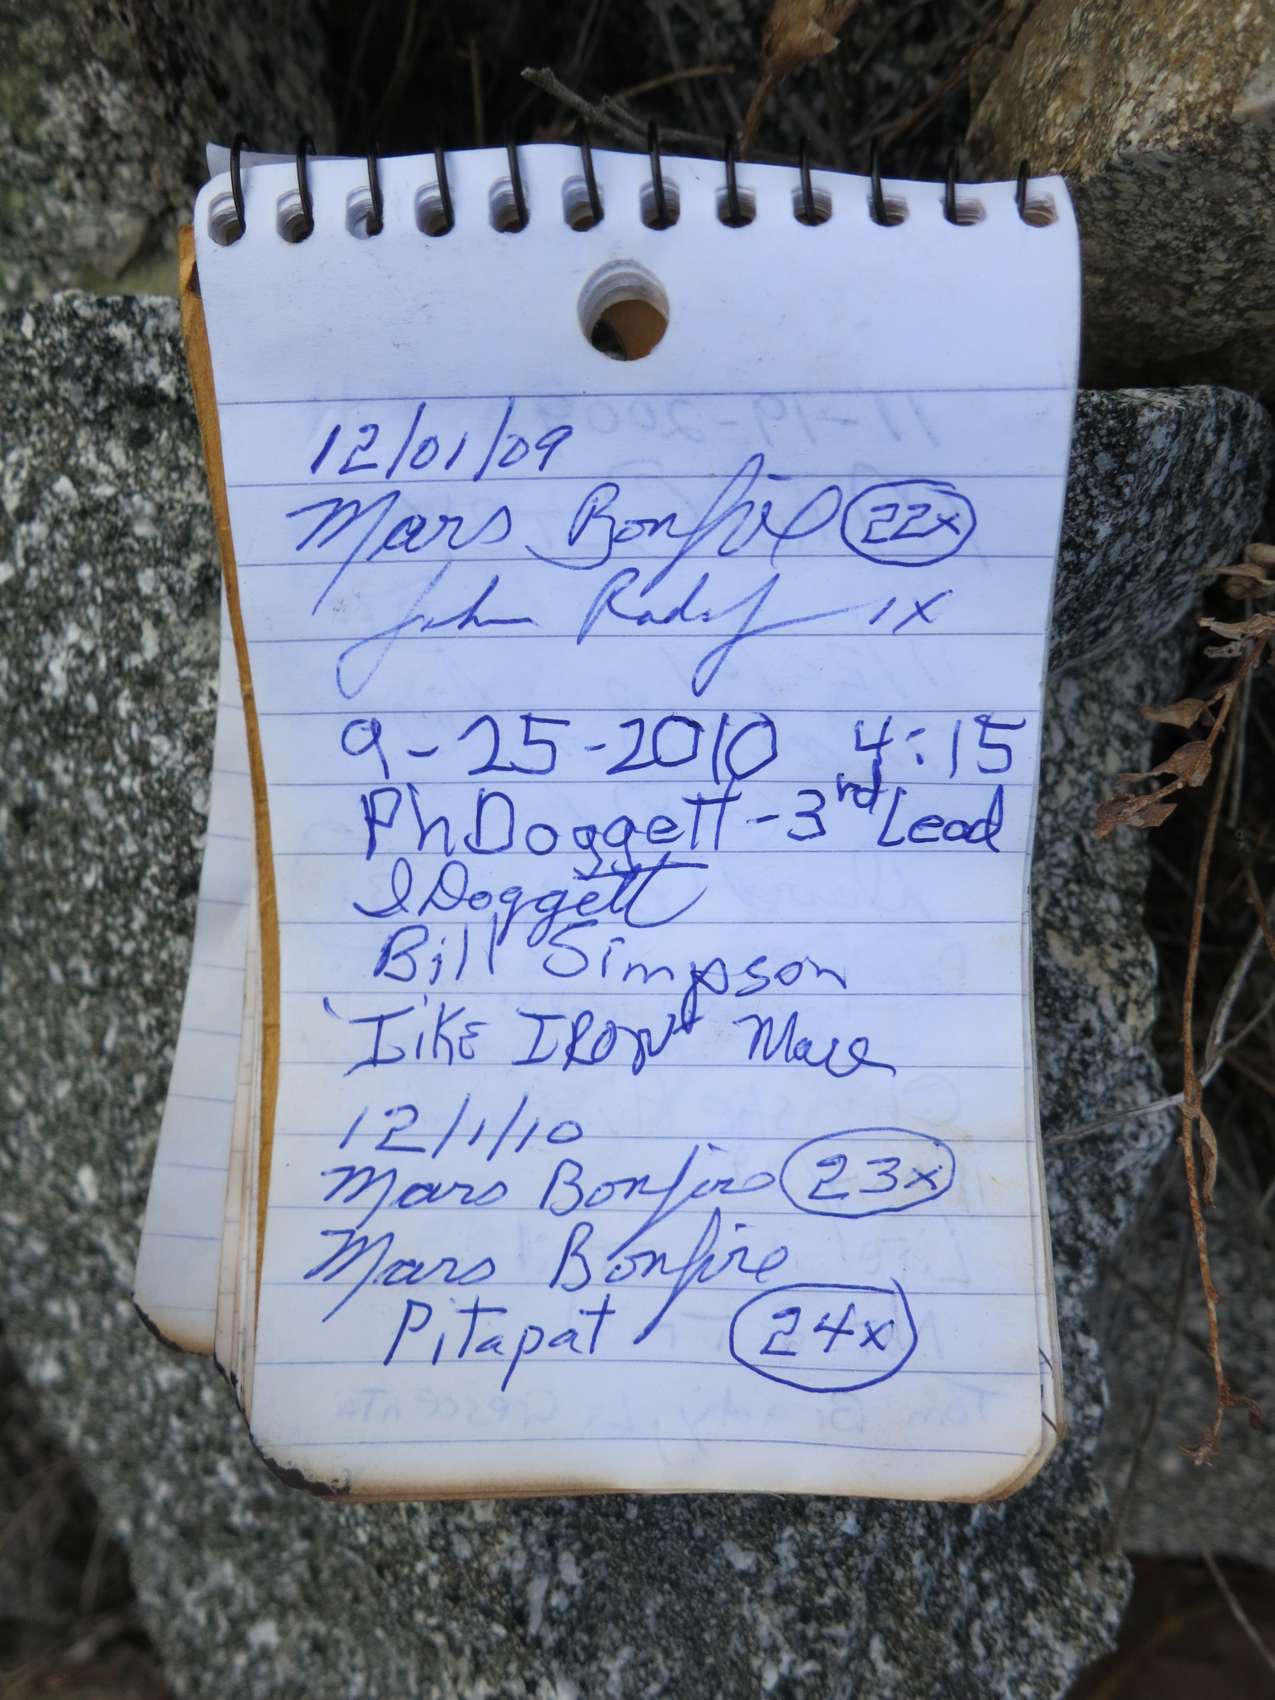 12/01/09
Mars Bonfire 22x
John Radaf 1X
9-25-2010 4:15
Ph Doggett - 3rd Lead
I Doggett
Bill Simpson
"IiKE IRON" Mace
12/1/10
Mars Bonfire 23x
Mars Bonfire
Pitapat 24x